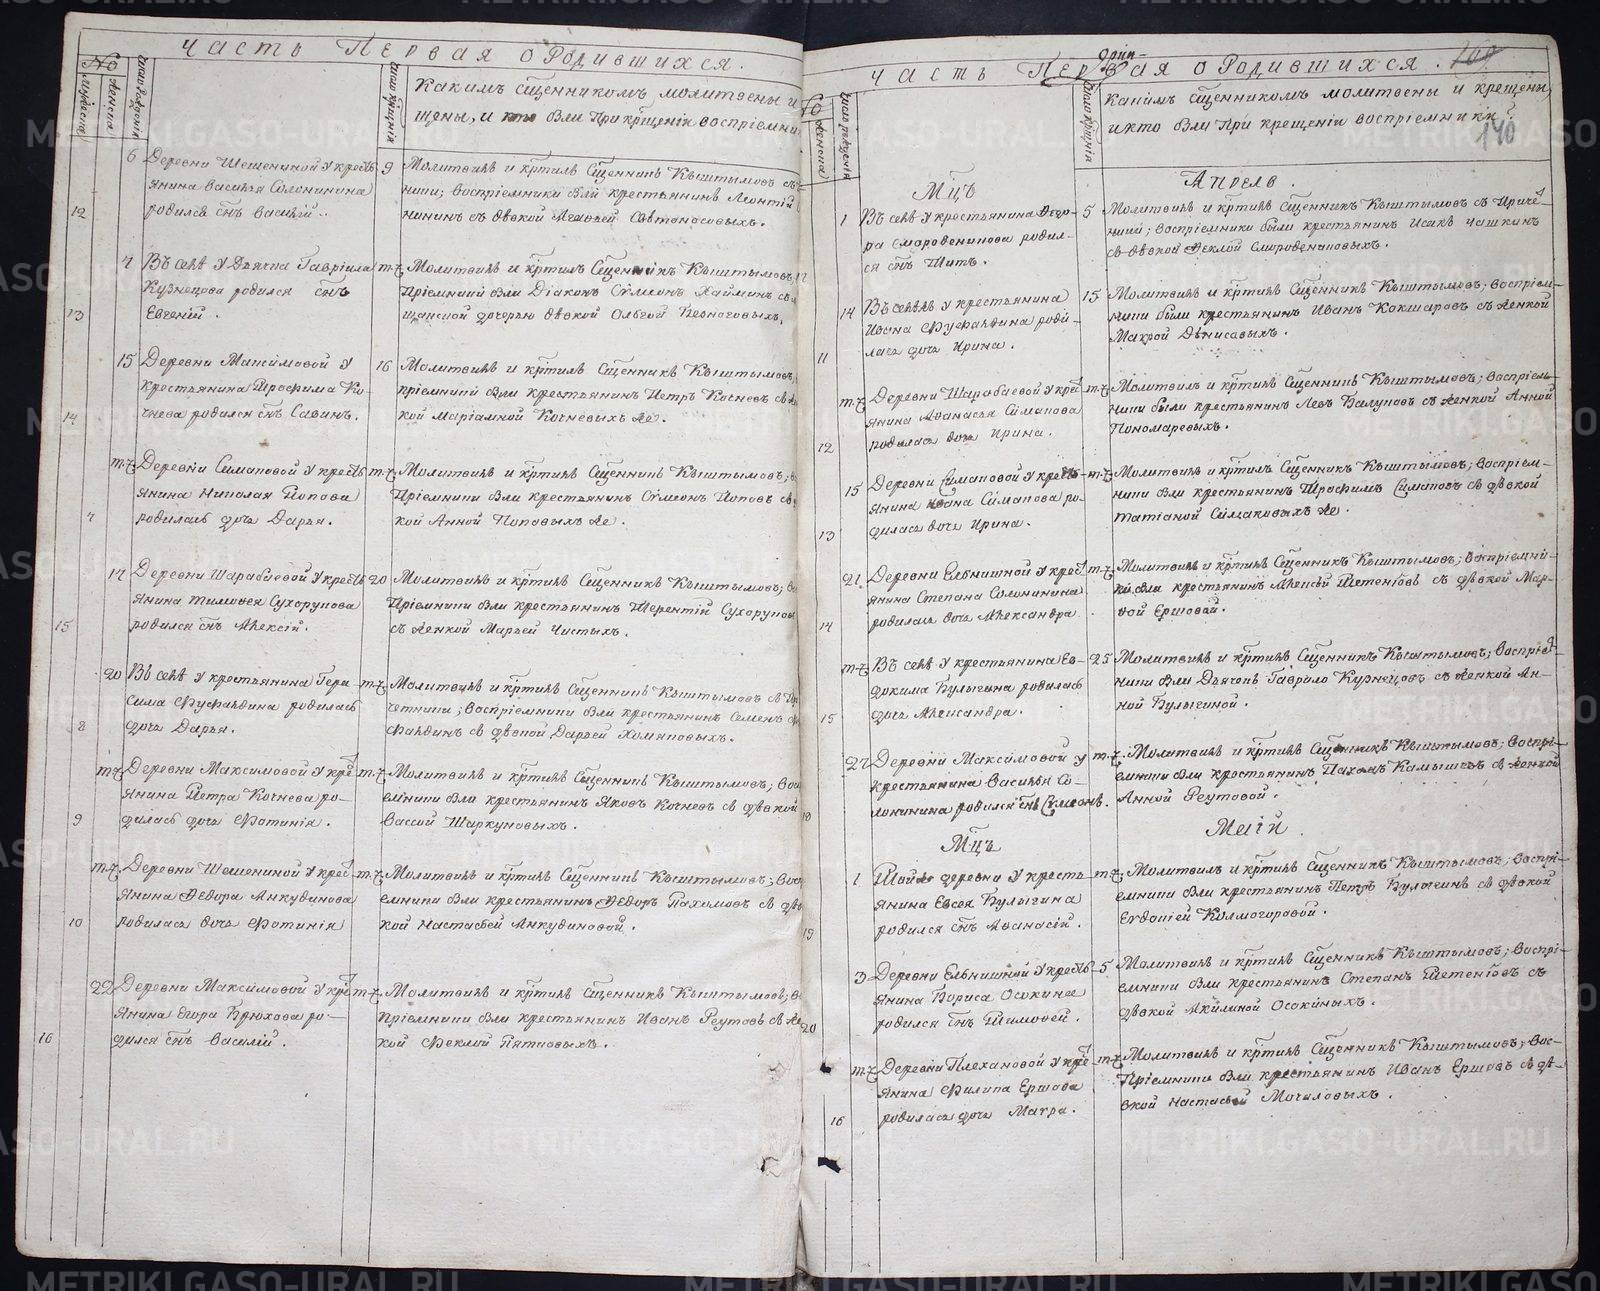 Часть Первая о Родившихся.
№ Мужеска Женска
Число рождения
Число крещения
Какимъ Сщенникомъ молитвены и
щены, и кто Бли При крщеніи воспріемни
12 6 Деревни Шешениной У кресть
янина Василья Солонинина
родился снъ Василій.
9 Молитвилъ и кртилъ Сщенникъ Кыштымовъ съ
воспріемники Бли крестьянинъ Леонтій
13 7 Въ селѣ У Дьячка Гавріила
Кузнецова родился снъ
Евгеній.
т.ч. Молитвилъ и кртилъ Сщенникъ Кыштымовъ,
Пріемники Бли Діаконъ Сѵмеонъ
щанской дочерью дѣвкой Ольгой
14 15 Деревни Максимовой У
крестьянина Трофима Ко-
чнева родился снъ Саванъ.
16 Молитвилъ и кртилъ Сщенникъ Кыштымовъ,
пріемники Бли крестьянинъ Петръ Кочневъ съ
кой Маріамной Кочневыхъ же.
7 т.ч. Деревни Симаковой У кресть
янина Николая Попова
родилась дочь Дарья.
т.ч. Молитвилъ и кртилъ Сщенникъ Кыштымовъ; во
Пріемники Бли крестьянинъ Сѵмеонъ Поповъ съ
кой Анной Поповыхъ же.
15 17 Деревни Шарабаевой У кресть
янина Тимоѳея Сухорукова
родился снъ Алексій.
20 Молитвилъ и кртилъ Сщенникъ Кыштымовъ; во
Пріемники Бли крестьянинъ Терентій Сухоруковъ
съ женкой Марьей Чистыхъ.
8 20 Въ селѣ У крестьянина Гера
сима родилась
дочь Дарья.
т.ч. Молитвилъ и кртилъ Сщенникъ Кыштымовъ съ При
четники; воспріемники Бли крестьянинъ Семенъ
съ дѣвкой Дарьей Хомяковыхъ.
9 т.ч. Деревни Максимовой У кре
янина Петра Кочнева ро-
дилась дочь Фотинія.
т.ч. Молитвилъ и кртилъ Сщенникъ Кыштымовъ; Вос
емники Бли крестьянинъ Яковъ Кочневъ съ дѣвкой
Вассой Шаркуновыхъ.
10 т.ч. Деревни Шешениной У крес
янина Ѳедора Анкудинова
родилась дочь Фотинія
т.ч. Молитвилъ и кртилъ Сщенникъ Кыштымовъ; Вос
емники Бли крестьянинъ Ѳедоръ Пахомовъ съ дѣв
кой Настасьей Анкудиновой.
16 22 Деревни Максимовой У кре
янина Егора Брюхова ро-
дился снъ Василій.
т.ч. Молитвилъ и кртилъ Сщенникъ Кыштымовъ; в
Пріемники Бли крестьянинъ Иванъ Реутовъ съ же
кой Феклой Пятковыхъ.
Часть Первая о Родившихся.
140
Женска
Число рожденія
Число крщенія
Какимъ Сщенникомъ молитвены и крещены,
и кто Бли При крещеніи воспріемники.
Мцъ Апрель.
17 1 Въ селѣ У крестьянина Егор-
ра Смородинникова родил-
ся снъ Титъ.
5 Молитвилъ и кртилъ Сщенникъ Кыштымовъ съ Приче-
воспріемники были крестьянинъ Исакъ Чашкинъ
съ дѣвкой Феклой
11 14 Въ селѣ У крестьянина
Ивана роди-
лась дочь Ирина.
15 Молитвилъ и кртилъ Сщенникъ Кыштымовъ; Воспріем-
ники были крестьянинъ Иванъ Кокшаровъ съ женкой
Макрой Денисовыхъ.
12 т.ч. Деревни Шарабаевой У крес
янина Аѳанасья Симакова
родилась дочь Ирина.
т.ч. Молитвилъ и кртилъ Сщенникъ Кыштымовъ; Воспріем-
ники были крестьянинъ Левъ Балуковъ съ женкой Анной
Пономаревыхъ.
13 15 Деревни Симаковой У кресть-
янина Ивана Симакова ро-
дилась дочь Ирина.
т.ч. Молитвилъ и кртилъ Сщенникъ Кыштымовъ; Воспріем-
ники Бли крестьянинъ Трофимъ Симаковъ съ дѣвкой
Татіаной Симаковыхъ же.
14 21 Деревни Ельнишной У крес
янина Степана Солонинина
родилась дочь Александра
т.ч. Молитвилъ и кртилъ Сщенникъ Кыштымовъ; Воспріемни-
ки Бли крестьянинъ Алексѣй Тетеневъ съ дѣвкой Мар-
ѳой Ершовой.
15 т.ч. Въ селѣ У крестьянина Ев-
докима Булыгина родилась
дочь Александра.
25 Молитвилъ и кртилъ Сщенникъ Кыштымовъ; Воспріем-
ники Бли Дьячекъ Гаврило Кузнецовъ съ женкой Ан-
ной Булыгиной.
18 27 Деревни Максимовой У
крестьянина Василья Со-
лонинина родился снъ Сѵмеонъ.
т.ч. Молитвилъ и кртилъ Сщенникъ Кыштымовъ; Воспрі-
емники Бли крестьянинъ Пахомъ Камышевъ съ женкой
Анной Реутовой.
Мцъ Маій.
19 1 Той же деревни У кресть-
янина Евсея Булыгина
родился снъ Аѳанасій.
т.ч. Молитвилъ и кртилъ Сщенникъ Кыштымовъ; Воспрі-
емники Бли крестьянинъ Петръ Булыгинъ съ дѣвкой
Евдокіей Колмогоровой.
20 3 Деревни Ельнишной У кресть-
янина Бориса Осокинa
родился снъ Тимоѳей.
5 Молитвилъ и кртилъ Сщенникъ Кыштымовъ; Воспрі-
емники Бли крестьянинъ Степанъ Тетеневъ съ
дѣвкой Акилиной Осокиныхъ.
16 т.ч. Деревни Плехановой У кре-
янина Филипа Ершова
родилась дочь Макра.
т.ч. Молитвилъ и кртилъ Сщенникъ Кыштымовъ; Вос-
Пріемники Бли крестьянинъ Иванъ Ершовъ съ дѣ-
вкой Настасьей Мочаловыхъ.
METRIKI.GASO-URAL.RU